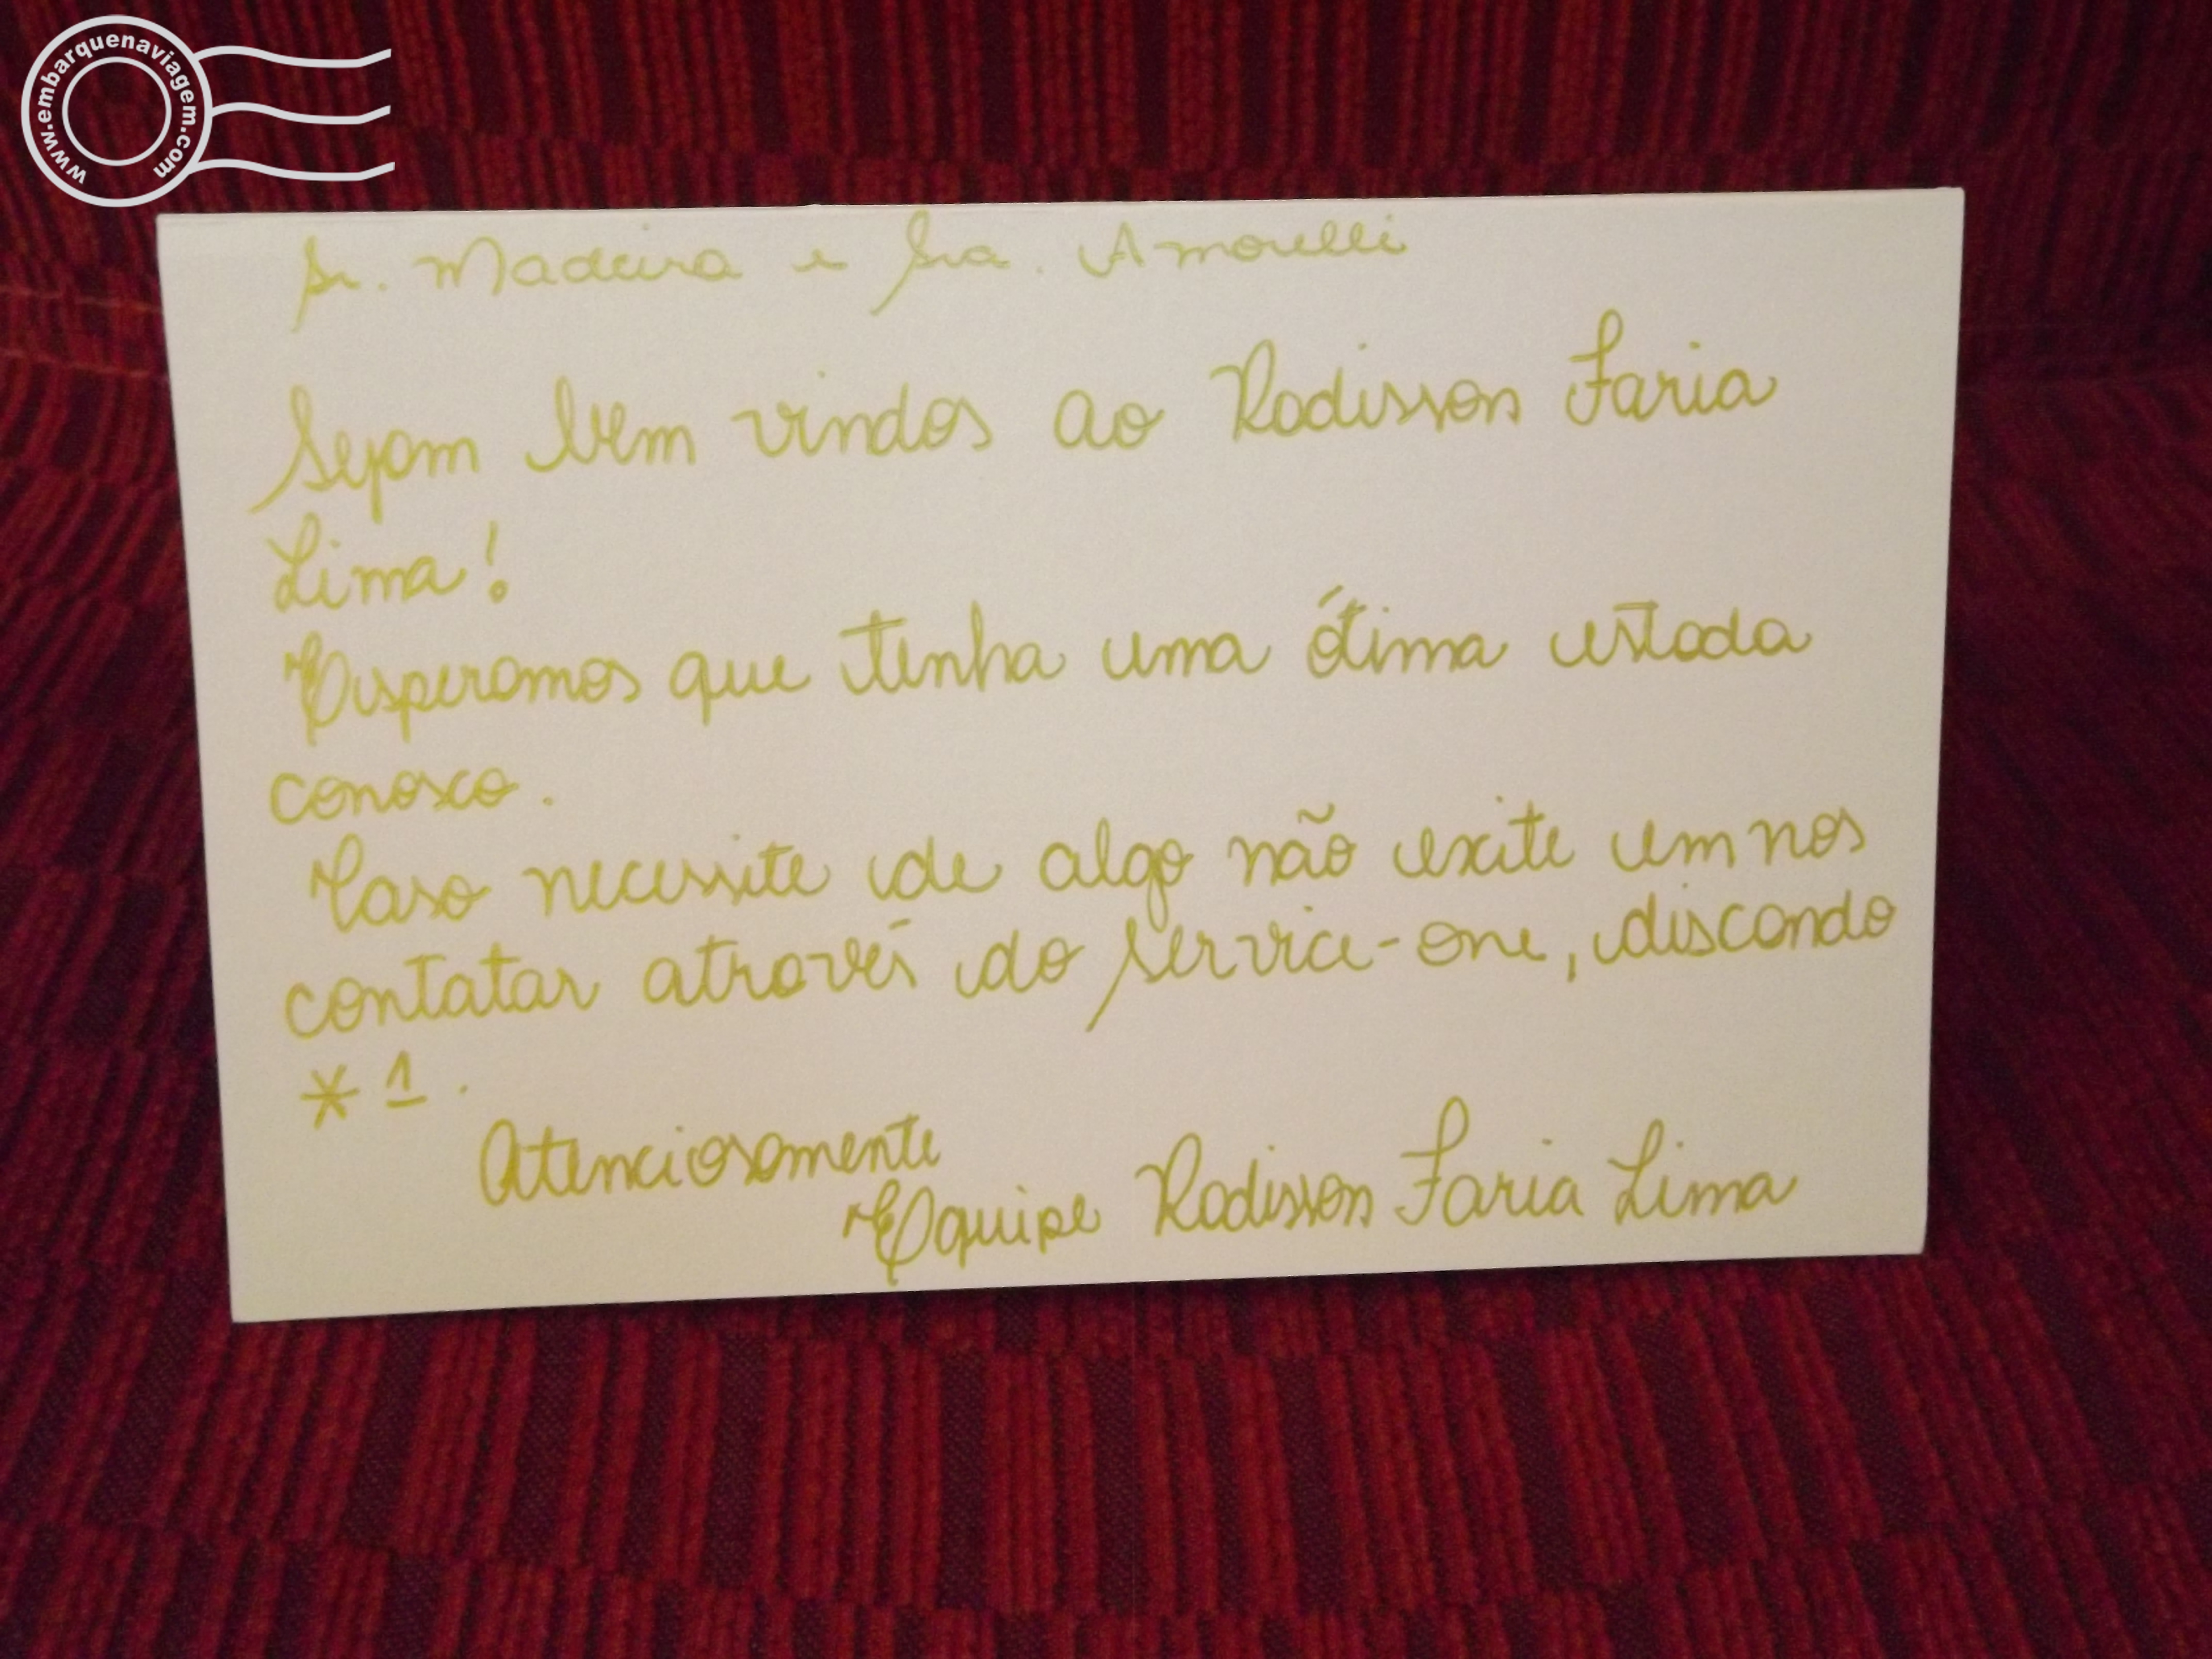 www.embarquenaviagem.com
Sr. Madeira e Sra. Amorelli
Sejam bem vindos ao Radisson Faria
Lima!
Esperamos que tenha uma ótima estada
conosco.
Caso necessite de algo não exite em nos
contatar através do Service-one, discando
*1.
Atenciosamente
Equipe Radisson Faria Lima